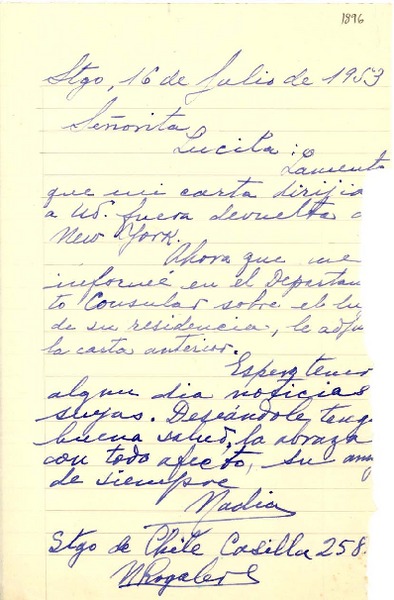 1896
Stgo, 16 de Julio de 1953
Señorita
Lucila:
Lament
que mi carta dirijia
a Ud. fuera devuelta a
New York.
Ahora que me
informé en el Departam
to Consular sobre el lu
de su residencia, le adju
la carta anterior.
Espero tener
algun dia noticias
suyas. Deseándole teng
buena salud, la abraza
con todo afecto, su am
de siempre
Nadia
Stgo de Chile Casilla 258.